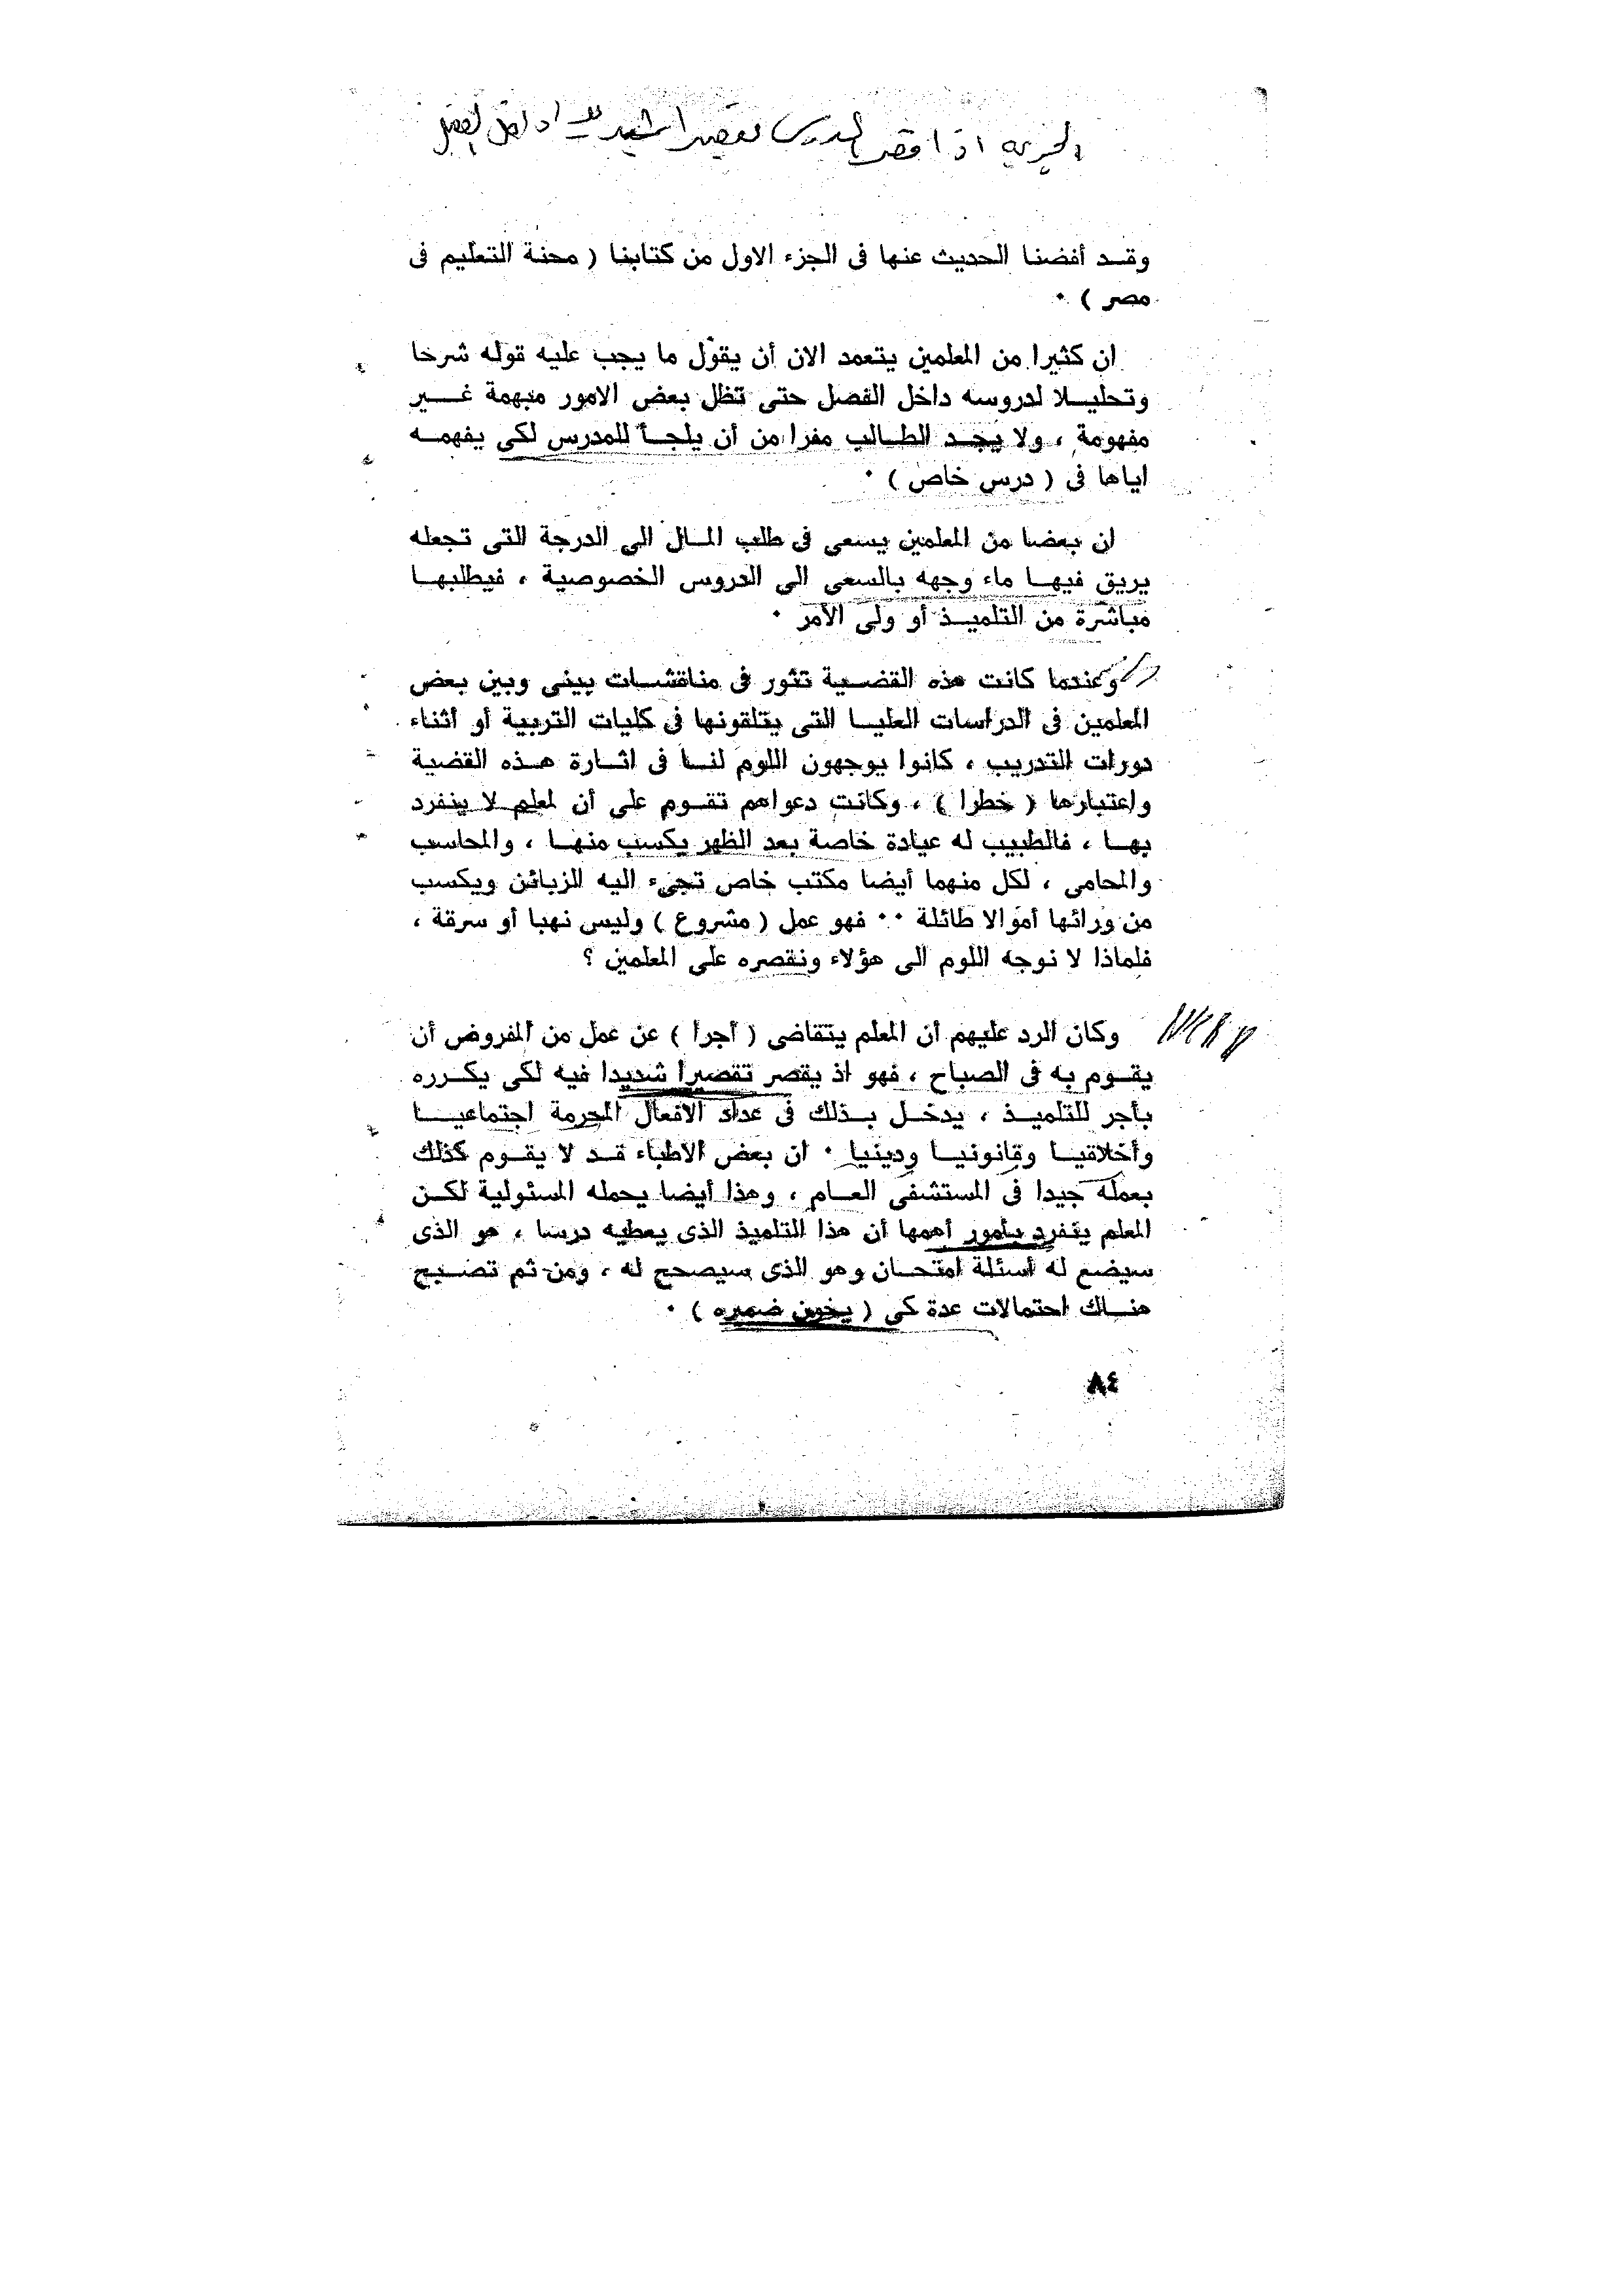 اذا قصر المدرس تقصيرا شديدا داخل الفصل
وقد أفضنا الحديث عنها فى الجزء الاول من كتابنا ( محنة التعليم فى
مصر ) ·
ان كثيرا من المعلمين يتعمد الان أن يقول ما يجب عليه قوله شرحا
وتحليلا لدروسه داخل الفصل حتى تظل بعض الامور مبهمة غير
مفهومة ، ولا يجد الطالب مفرا من أن يلجأ للمدرس لكى يفهمه
اياها فى ( درس خاص ) ·
ان بعضا من المعلمين يسعى فى طلب المال الى الدرجة التى تجعله
يريق فيها ماء وجهه بالسعى الى الدروس الخصوصية ، فيطلبها
مباشرة من التلميذ أو ولى الأمر ·
وعندما كانت هذه القضية تثور فى مناقشات بينى وبين بعض
المعلمين فى الدراسات العليا التى يتلقونها فى كليات التربية أو أثناء
دورات التدريب ، كانوا يوجهون اللوم لنا فى اثارة هذه القضية
واعتبارها ( خطرا ) ، وكانت دعواهم تقوم على أن لمعلم لا ينفرد
بها ، فالطبيب له عيادة خاصة بعد الظهر يكسب منها ، والمحاسب
والمحامى ، لكل منهما أيضا مكتب خاص تجىء اليه الزبائن ويكسب
من ورائها أموالا طائلة ·· فهو عمل ( مشروع ) وليس نهبا أو سرقة ،
فلماذا لا نوجه اللوم الى هؤلاء ونقصره على المعلمين ؟
وكان الرد عليهم أن المعلم يتقاضى ( أجرا ) عن عمل من المفروض أن
يقوم به فى الصباح ، فهو اذ يقصر تقصيرا شديدا فيه لكى يكرره
بأجر للتلميذ ، يدخل بذلك فى عداد الافعال المجرمة اجتماعيا
وأخلاقيا وقانونيا ودينيا · ان بعض الأطباء قد لا يقوم كذلك
بعمله جيدا فى المستشفى العام ، وهذا أيضا يحمله المسئولية لكن
المعلم ينفرد بأمور أهمها أن هذا التلميذ الذى يعطيه درسا ، هو الذى
سيضع له أسئلة امتحان وهو الذى سيصحح له ، ومن ثم تصبح
هناك احتمالات عدة كى ( يخون ضميره ) ·
٨٤